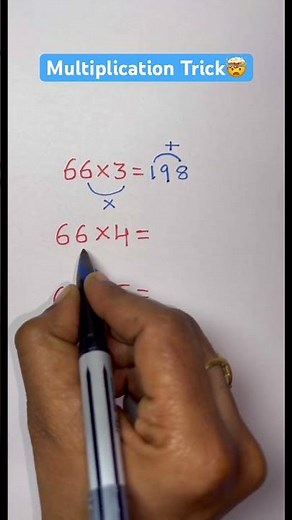 Multiplication Trick🤯
+
66×3=198
×
66×4=
=